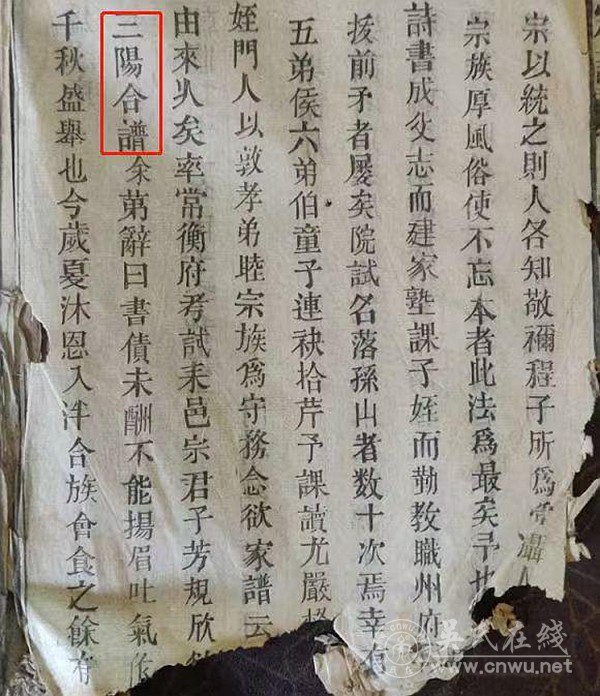 宗以統之則人各知敬禰程子所爲攝人
宗族厚風俗使不忘本者此法爲最矣予也
詩書成父志而建家塾課子姪而勤教職州府
拔前矛者屢矣院試名落孫山者数十次焉幸有
五弟侯六弟伯童子連袂拾芹予課讀尤嚴
姪門人以敦孝弟睦宗族爲守務念欲家譜云
由來久矣率常衡府考試耒邑宗君子芳規欣
二陽合譜余第辭曰書債未酬不能揚眉吐氣
千秋盛舉也今歲夏沐恩入泮合族會食之餘有
吴氏在綫
www.cnwu.net